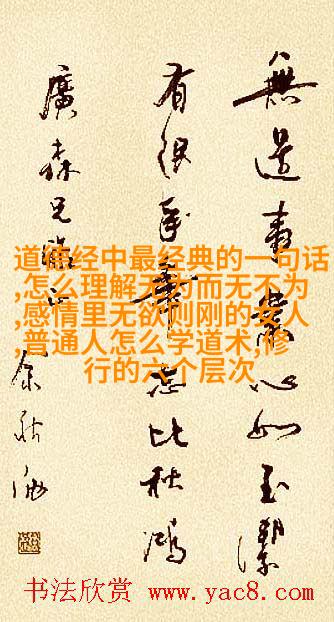 無 心如玉潔
有 志比秋鴻
廣森兄
道德经中最经典的一句话
,怎么理解无为而无不为
,感情里无欲则刚的女人
,普通人怎么学道术,修
行的六个层次
书法欣赏 www.yac8.com